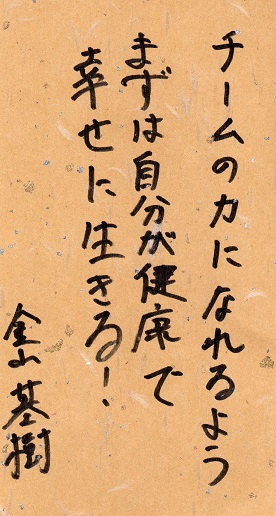 チームの力になれるよう
まずは自分が健康で
幸せに生きる!
金山基樹